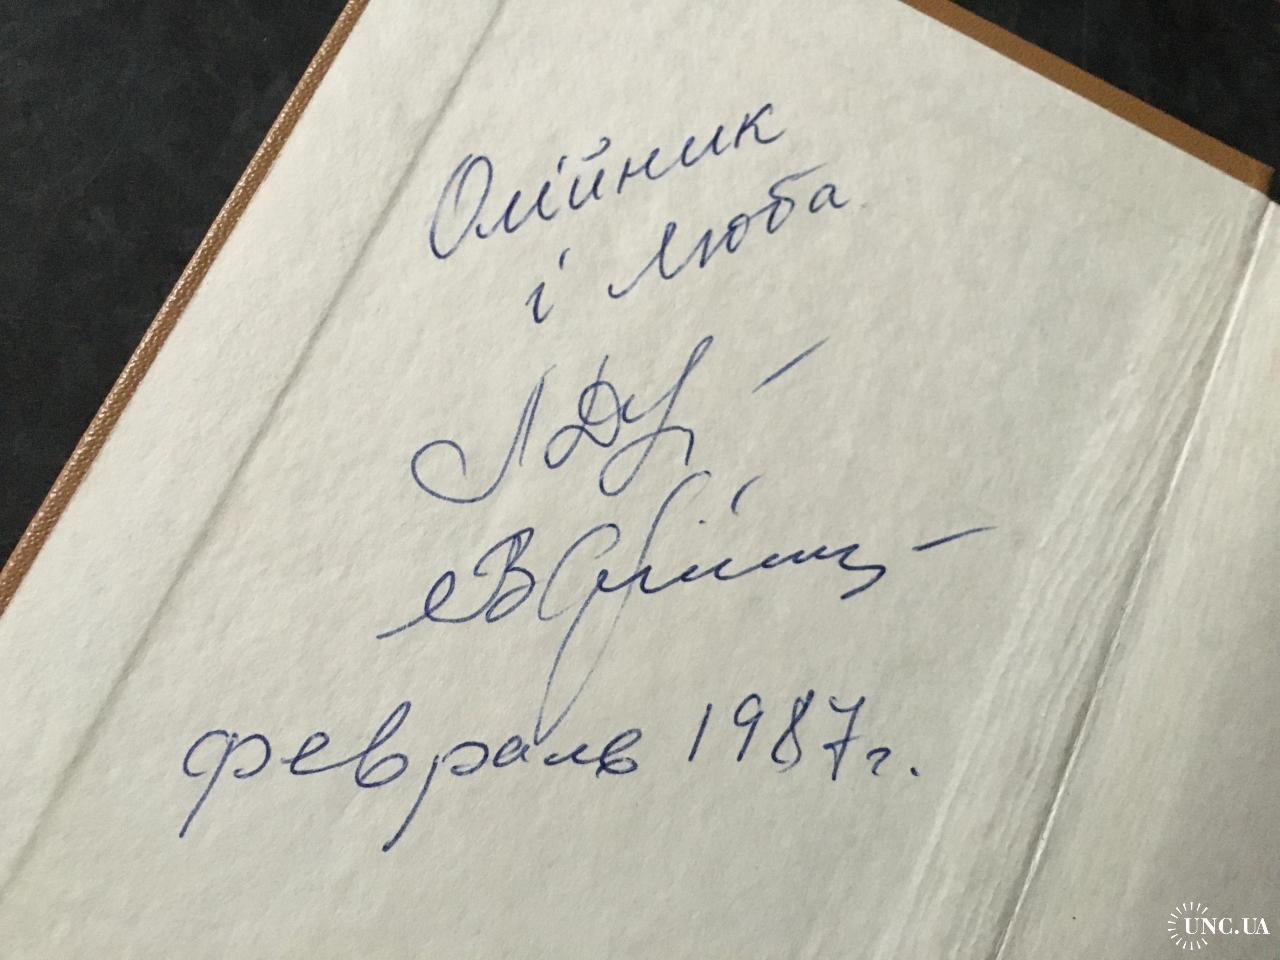 Олійник
і Люба
ЛДУ –
февраль 1987 г.
UNC.UA